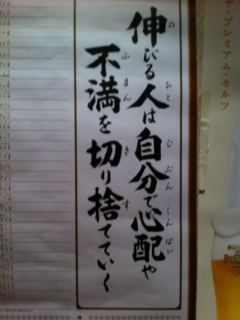 伸びる人は自分で心配や
不満を切り捨てていく
ザ・プレミアム・モルツ